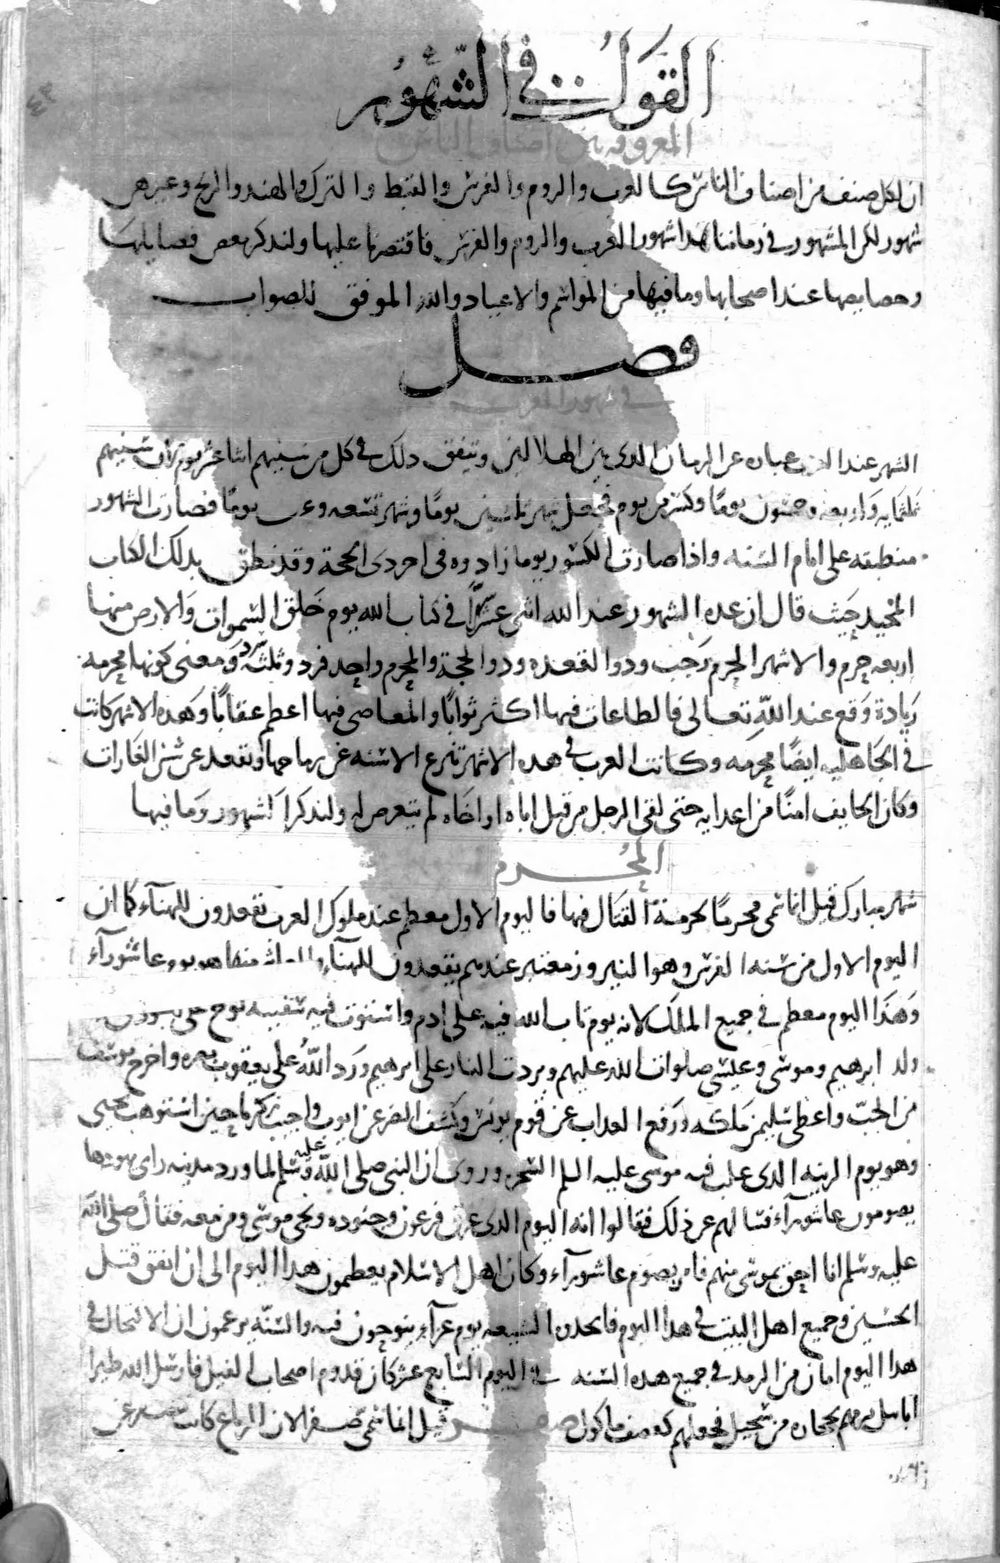 القول في الشهور
المعروفة بين اصناف الناس
ان لكل صنف من اصناف الناس كالعرب والروم والفرس والقبط والترك والهند والزنج وغيرهم
شهور لكن المشهور في زماننا هذا شهور العرب والروم والفرس فاقتصرنا عليها ولنذكر بعض فضايلها
وخصايصها عند اصحابها وما فيها من المواسم والاعياد والله الموفق للصواب
فصل
في شهور العرب
الشهر عند العرب عبارة عن الزمان الذي بين الهلالين ويتفق ذلك في كل من سنينهم اثنا عشر يوم فان سنينهم
ثلثماية واربعة وخمسون يوما وكسر من يوم فجعل شهر ثلاثين يوما وشهر تسعة وعشرين يوما فصارت الشهور
منطبقة على ايام السنة واذا صارت الكسور يوما زادوه في اخر ذي الحجة وقد نطق بذلك الكتاب
المجيد حيث قال ان عدة الشهور عند الله اثني عشر شهرا في كتاب الله يوم خلق السموات والارض منها
اربعة حرم والاشهر الحرم رجب وذو القعدة وذو الحجة والمحرم واحد فرد وثلثة سرد ومعنى كونها محرمة
زيادة وقع عند الله تعالى فالطاعات فيها اكثر ثوابا والمعاصي فيها اعظم عقابا وهذه الاشهر كانت
في الجاهلية ايضا محرمة وكانت العرب في هذه الاشهر تنزع الاسنة عن رماحها وتقعد عن شن الغارات
وكان الخايف امنا من اعدايه حتى لقى الرجل من قتل اباه او اخاه لم يتعرض له ولنذكر الشهور وما فيها
المحرم
شهر مبارك قيل انما سمي محرما لحرمة القتال فيها فاليوم الاول معظم عند ملوك العرب يقعدون للهناء كما ان
اليوم الاول من سنة الفرس وهو النيروز معتبر عندهم يقعدون للهناء منها هو يوم عاشوراء
وهذا اليوم معظم في جميع الملل لانه يوم تاب الله فيه على ادم واستوت فيه سفينة نوح على الجودي
ولد ابرهيم وموسى وعيسى صلوات الله عليهم وبردت النار على ابرهيم ورد الله على يعقوب بصره واخرج يوسف
من الجب واعطى سليمن ملكه ورفع العذاب عن قوم يونس وكشف الضر عن ايوب واجيب زكريا حين استوهب يحيى
وهو يوم الزينة الذي غلب فيه موسى عليه السلم السحرة وروي ان النبي صلى الله عليه وسلم لما ورد مدينة راى يهودها
يصومون عاشوراء فسالهم عن ذلك فقالوا انه اليوم الذي غرق فرعون وجنوده ونجى موسى ومن معه فقال صلى الله
عليه وسلم انا احق بموسى منهم فامر بصوم عاشوراء وكان اهل الاسلام يعظمون هذا اليوم الى ان اتفق قتل
الحسين وجميع اهل البيت في هذا اليوم فاتخذه الشيعة يوم عزاء ينوحون فيه والسنة يزعمون ان الاكتحال في
هذا اليوم امان من الرمد في جميع هذه السنة في اليوم السابع عشر كان قدوم اصحاب الفيل فارسل الله طيرا
ابابيل ترميهم بحجارة من سجيل فجعلهم كعصف ماكول صفر قيل انما سمي صفر لان الرباع كانت تصفر عن